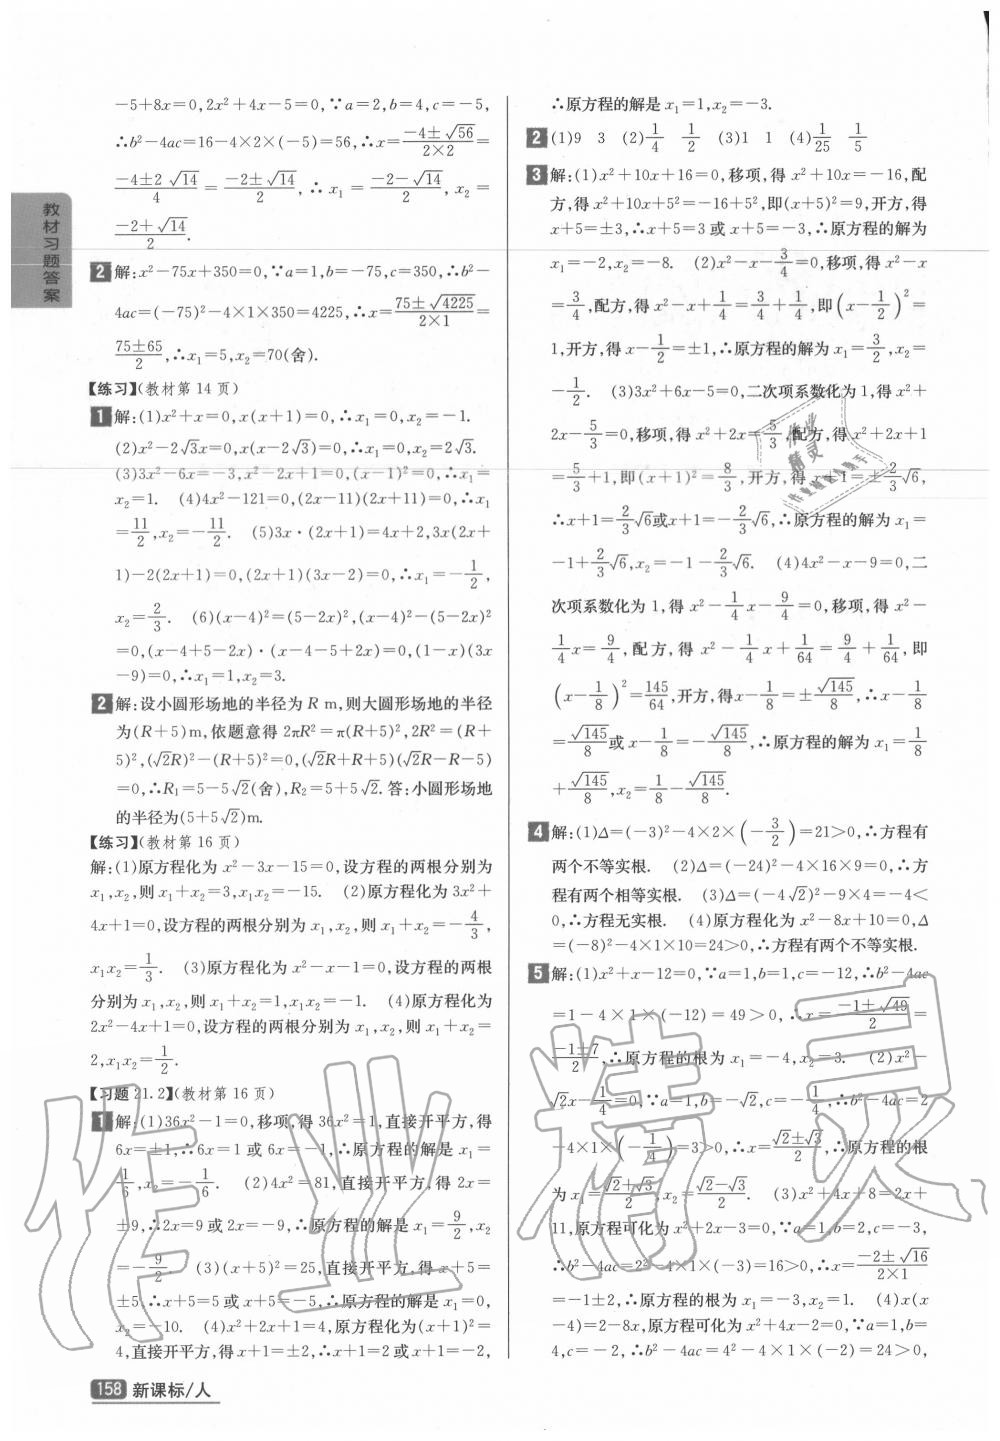 教材习题答案
−5+8x=0,2x²+4x−5=0,∵a=2,b=4,c=−5,
∴b²−4ac=16−4×2×(−5)=56,∴x=(−4±√56)/(2×2)=
(−4±2√14)/4=(−2±√14)/2,∴x₁=(−2−√14)/2,x₂=
(−2+√14)/2.
2 解:x²−75x+350=0,∵a=1,b=−75,c=350,∴b²−
4ac=(−75)²−4×1×350=4225,∴x=(75±√4225)/(2×1)=
(75±65)/2,∴x₁=5,x₂=70(舍).
【练习】(教材第14页)
1 解:(1)x²+x=0,x(x+1)=0,∴x₁=0,x₂=−1.
(2)x²−2√3x=0,x(x−2√3)=0,∴x₁=0,x₂=2√3.
(3)3x²−6x=−3,x²−2x+1=0,(x−1)²=0,∴x₁=
x₂=1. (4)4x²−121=0,(2x−11)(2x+11)=0,∴x₁
=11/2,x₂=−11/2. (5)3x·(2x+1)=4x+2,3x(2x+
1)−2(2x+1)=0,(2x+1)(3x−2)=0,∴x₁=−1/2,
x₂=2/3. (6)(x−4)²=(5−2x)²,(x−4)²−(5−2x)²
=0,(x−4+5−2x)·(x−4−5+2x)=0,(1−x)(3x
−9)=0,∴x₁=1,x₂=3.
2 解:设小圆形场地的半径为R m,则大圆形场地的半径
为(R+5)m,依题意得2πR²=π(R+5)²,2R²=(R+
5)²,(√2R)²−(R+5)²=0,(√2R+R+5)(√2R−R−5)
=0,∴R₁=5−5√2(舍),R₂=5+5√2.答:小圆形场地
的半径为(5+5√2)m.
【练习】(教材第16页)
解:(1)原方程化为x²−3x−15=0,设方程的两根分别为
x₁,x₂,则x₁+x₂=3,x₁x₂=−15. (2)原方程化为3x²+
4x+1=0,设方程的两根分别为x₁,x₂,则x₁+x₂=−4/3,
x₁x₂=1/3. (3)原方程化为x²−x−1=0,设方程的两根
分别为x₁,x₂,则x₁+x₂=1,x₁x₂=−1. (4)原方程化为
2x²−4x+1=0,设方程的两根分别为x₁,x₂,则x₁+x₂=
2,x₁x₂=1/2.
【习题21.2】(教材第16页)
1 解:(1)36x²−1=0,移项,得36x²=1,直接开平方,得
6x=±1,∴6x=1或6x=−1,∴原方程的解是x₁=
1/6,x₂=−1/6. (2)4x²=81,直接开平方,得2x=
±9,∴2x=9或2x=−9,∴原方程的解是x₁=9/2,x₂
=−9/2. (3)(x+5)²=25,直接开平方,得x+5=
±5,∴x+5=5或x+5=−5,∴原方程的解是x₁=0,
x₂=−10. (4)x²+2x+1=4,原方程化为(x+1)²=
4,直接开平方,得x+1=±2,∴x+1=2或x+1=−2,
∴原方程的解是x₁=1,x₂=−3.
2 (1)9 3 (2)1/4 1/2 (3)1 1 (4)1/25 1/5
3 解:(1)x²+10x+16=0,移项,得x²+10x=−16,配
方,得x²+10x+5²=−16+5²,即(x+5)²=9,开方,得
x+5=±3,∴x+5=3或x+5=−3,∴原方程的解为
x₁=−2,x₂=−8. (2)x²−x−3/4=0,移项,得x²−x
=3/4,配方,得x²−x+1/4=3/4+1/4,即(x−1/2)²=
1,开方,得x−1/2=±1,∴原方程的解为x₁=3/2,x₂=
−1/2. (3)3x²+6x−5=0,二次项系数化为1,得x²+
2x−5/3=0,移项,得x²+2x=5/3,配方,得x²+2x+1
=5/3+1,即(x+1)²=8/3,开方,得x+1=±2/3√6,
∴x+1=2/3√6或x+1=−2/3√6,∴原方程的解为x₁=
−1+2/3√6,x₂=−1−2/3√6. (4)4x²−x−9=0,二
次项系数化为1,得x²−1/4x−9/4=0,移项,得x²−
1/4x=9/4,配方,得x²−1/4x+1/64=9/4+1/64,即
(x−1/8)²=145/64,开方,得x−1/8=±√145/8,∴x−1/8
=√145/8或x−1/8=−√145/8,∴原方程的解为x₁=1/8
+√145/8,x₂=1/8−√145/8.
4 解:(1)Δ=(−3)²−4×2×(−3/2)=21>0,∴方程有
两个不等实根. (2)Δ=(−24)²−4×16×9=0,∴方
程有两个相等实根. (3)Δ=(−4√2)²−9×4=−4<
0,∴方程无实根. (4)原方程化为x²−8x+10=0,Δ
=(−8)²−4×1×10=24>0,∴方程有两个不等实根.
5 解:(1)x²+x−12=0,∵a=1,b=1,c=−12,∴b²−4ac
=1−4×1×(−12)=49>0,∴x=(−1±√49)/2=
(−1±7)/2,∴原方程的根为x₁=−4,x₂=3. (2)x²−
√2x−1/4=0,∵a=1,b=−√2,c=−1/4,∴b²−4ac=2
−4×1×(−1/4)=3>0,∴x=(√2±√3)/2,∴原方程的根
为x₁=(√2+√3)/2,x₂=(√2−√3)/2. (3)x²+4x+8=2x+
11,原方程可化为x²+2x−3=0,∵a=1,b=2,c=−3,
∴b²−4ac=2²−4×1×(−3)=16>0,∴x=(−2±√16)/(2×1)
=−1±2,∴原方程的根为x₁=−3,x₂=1. (4)x(x
−4)=2−8x,原方程可化为x²+4x−2=0,∵a=1,b=
4,c=−2,∴b²−4ac=4²−4×1×(−2)=24>0,
作业精灵
158 新课标/人